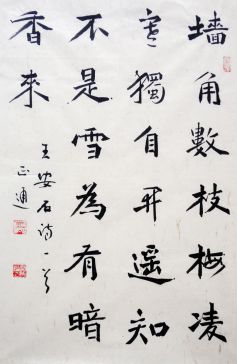 墙角數枝梅凌
寒獨自开遥知
不是雪為有暗
香来
王安石詩一首
正通